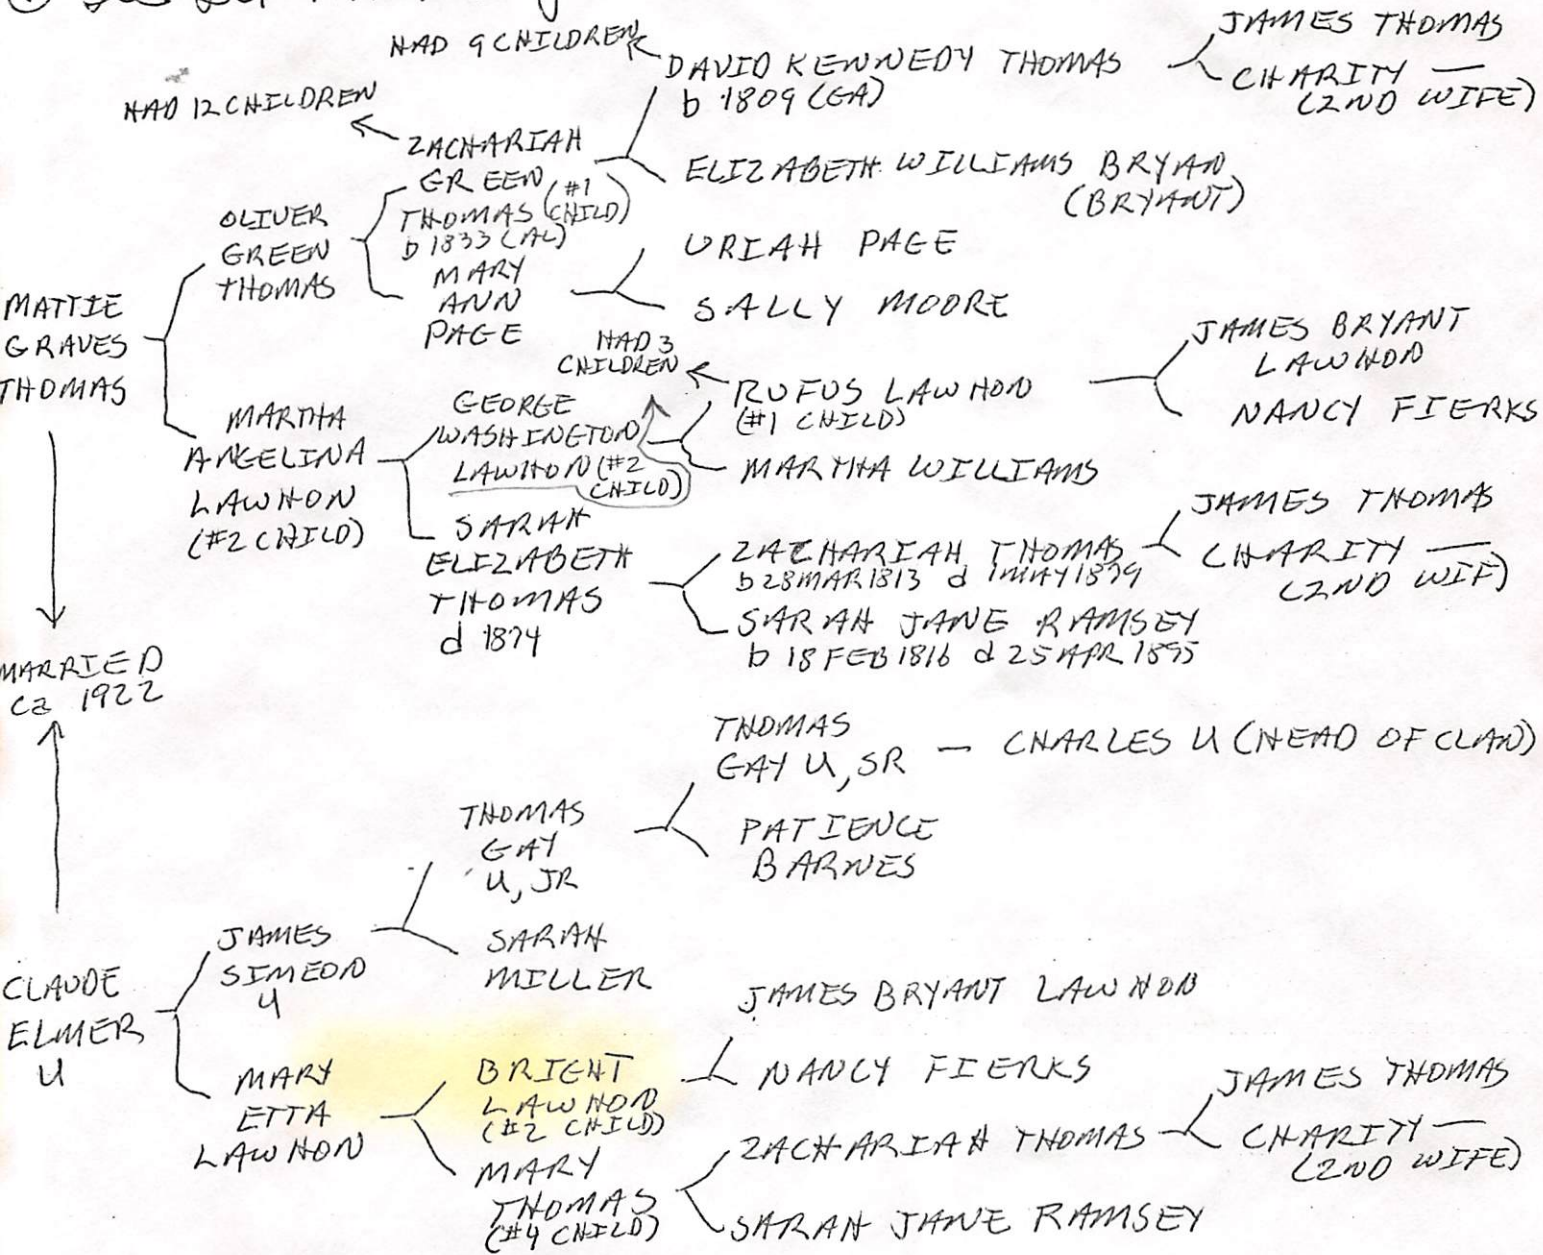 HAD 9 CHILDREN
JAMES THOMAS
DAVID KENNEDY THOMAS
b 1809 (GA)
CHARITY —
(2ND WIFE)
HAD 12 CHILDREN
ZACHARIAH
GREEN
THOMAS (#1
CHILD)
b 1833 (AL)
ELIZABETH WILLIAMS BRYAN
(BRYANT)
OLIVER
GREEN
THOMAS
MARY
ANN
PAGE
URIAH PAGE
SALLY MOORE
MATTIE
GRAVES
THOMAS
HAD 3
CHILDREN
JAMES BRYANT
LAWHON
NANCY FIERKS
RUFUS LAWHON
(#1 CHILD)
GEORGE
WASHINGTON
LAWHON (#2
CHILD)
MARTHA WILLIAMS
MARTHA
ANGELINA
LAWHON
(#2 CHILD)
SARAH
ELIZABETH
THOMAS
d 1874
ZACHARIAH THOMAS
b 28 MAR 1813 d 1 MAY 1879
JAMES THOMAS
CHARITY —
(2ND WIF)
SARAH JANE RAMSEY
b 18 FEB 1816 d 25 APR 1895
MARRIED
ca 1922
THOMAS
GAY U, SR — CHARLES U (HEAD OF CLAN)
THOMAS
GAY
U, JR
PATIENCE
BARNES
JAMES
SIMEON
U
SARAH
MILLER
CLAUDE
ELMER
U
JAMES BRYANT LAWHON
NANCY FIERKS
MARY
ETTA
LAWHON
BRIGHT
LAWHON
(#2 CHILD)
MARY
THOMAS
(#4 CHILD)
ZACHARIAH THOMAS
JAMES THOMAS
CHARITY —
(2ND WIFE)
SARAH JANE RAMSEY